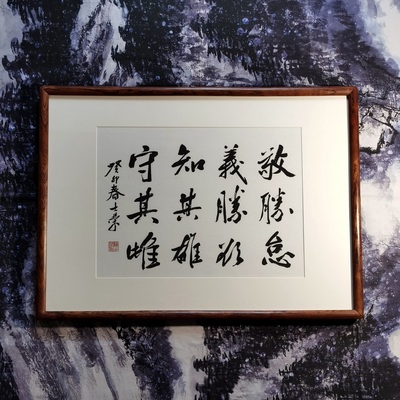 敬勝怠
義勝欲
知其雄
守其雌
癸卯春士